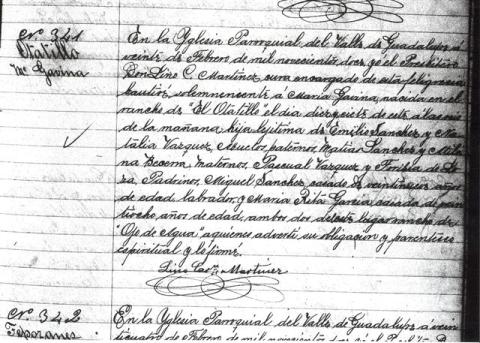 N.º 341
Otatillo
Mª Gavina
En la Yglesia Parroquial del Valle de Guadalupe á
veinte de Febrero de mil novecientos doce, yo el Presbítero
Don Lino C. Martinez, cura encargado de esta feligresia
bauticé solemnemente á Maria Gavina, nacida en el
rancho de "El Otatillo" el dia diez y siete de este á las seis
de la mañana, hija legitima de Emilio Sanchez y Na-
talia Vazquez. Abuelos paternos, Matias Sanchez y
Becerra, maternos, Pascual Vazquez y de
Padrinos, Miguel Sanchez casado de veintiseis años
de edad, labrador, y Maria Rita Garcia casada de
tiocho años de edad, ambos dos de este lugar rancho de
"Ojo de Agua" a quienes advertí su obligacion y parentesco
espiritual y lo firmé.
Lino C. Martinez
N.º 342
Teporanes
En la Yglesia Parroquial del Valle de Guadalupe á vein-
ticuatro de Febrero de mil novecientos doce yo el